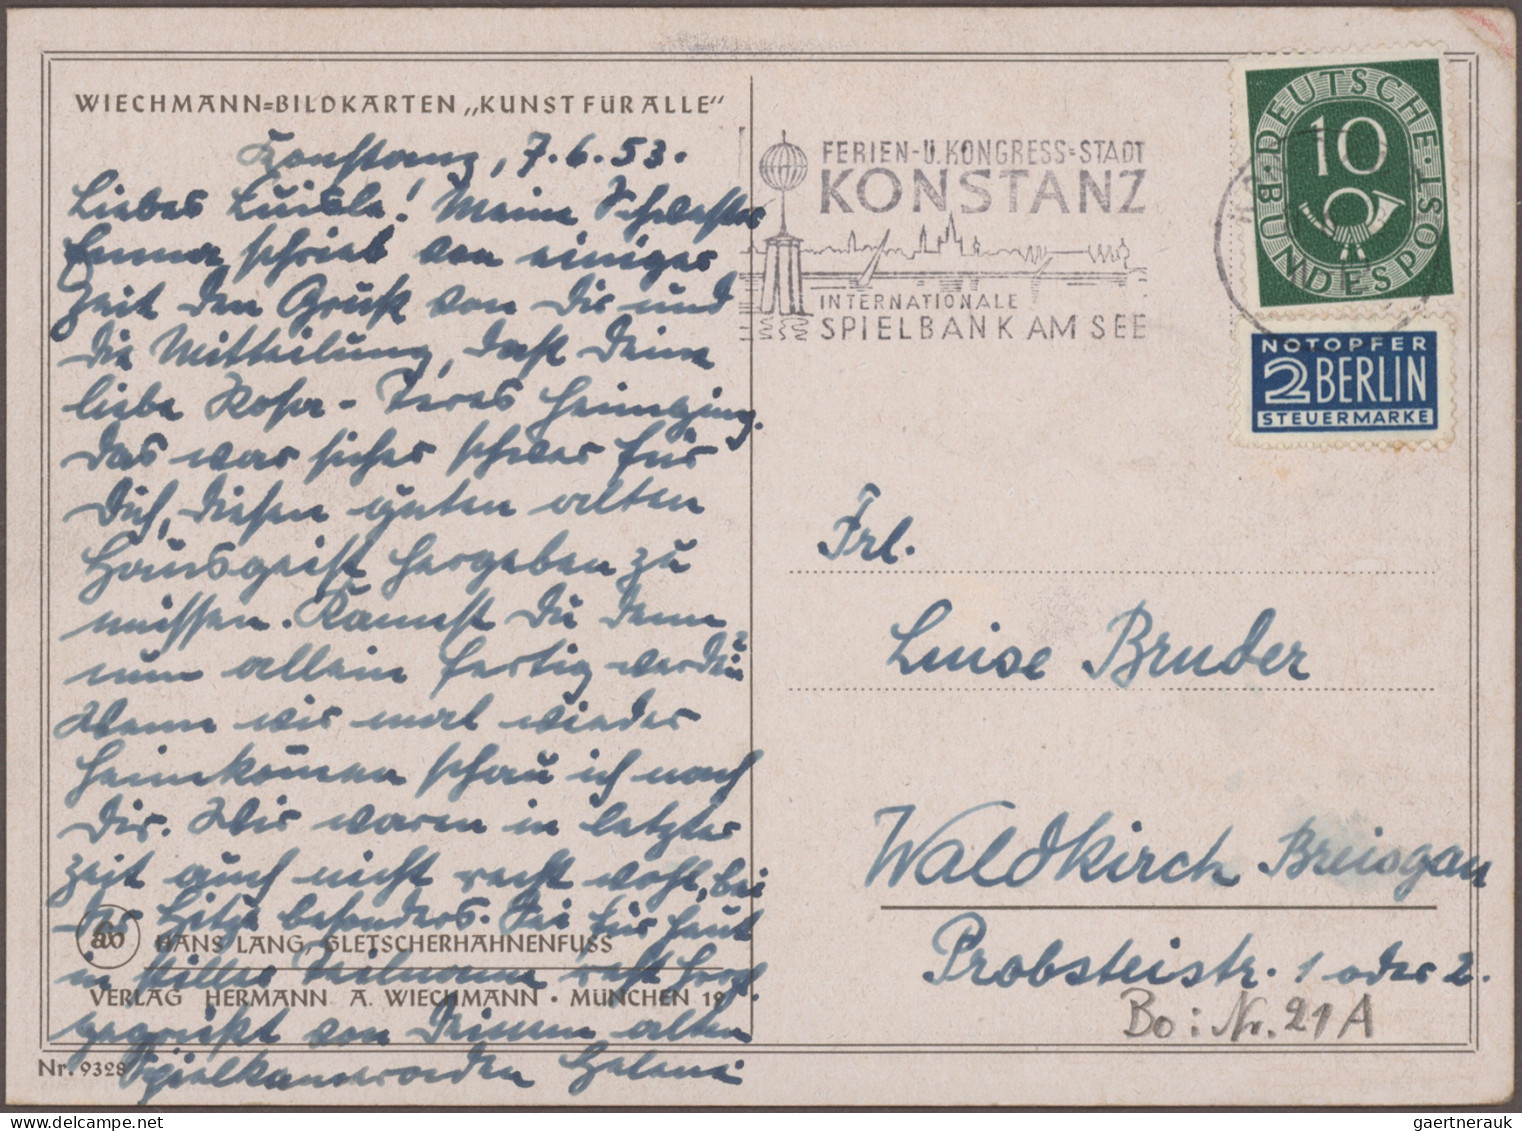 WIECHMANN=BILDKARTEN „KUNST FÜR ALLE"
Konstanz, 7.6.53.
Liebes Luisle! Meine Schwester
Emma schrieb von einiger
Zeit den Gruß von Dir und
die Mitteilung, daß Deine
liebe Rosa-Teres heimging.
Das war sicher schwer für
Dich, diesen guten alten
Hausgeist hergeben zu
müssen. Kannst Du denn
nun allein fertig werden?
Wenn wir mal wieder
heimkommen schau ich nach
Dir. Wir waren in letzter
Zeit auch nicht recht wohl, bei
der Hitze besonders. Sei für heut
HANS LANG, GLETSCHERHAHNENFUSS
in stiller Teilnahme recht herzl.
VERLAG HERMANN A. WIECHMANN · MÜNCHEN 19
gegrüßt von Deinem alten
Nr. 9328
Helene
FERIEN-U. KONGRESS=STADT
KONSTANZ
INTERNATIONALE
SPIELBANK AM SEE
DEUTSCHE · POST
· BUNDESPOST
10
NOTOPFER
2 BERLIN
STEUERMARKE
Frl.
Luise Bruder
Waldkirch Breisgau
Probsteistr. 1 oder 2.
Bo: Nr. 21 A
gaertnerauk